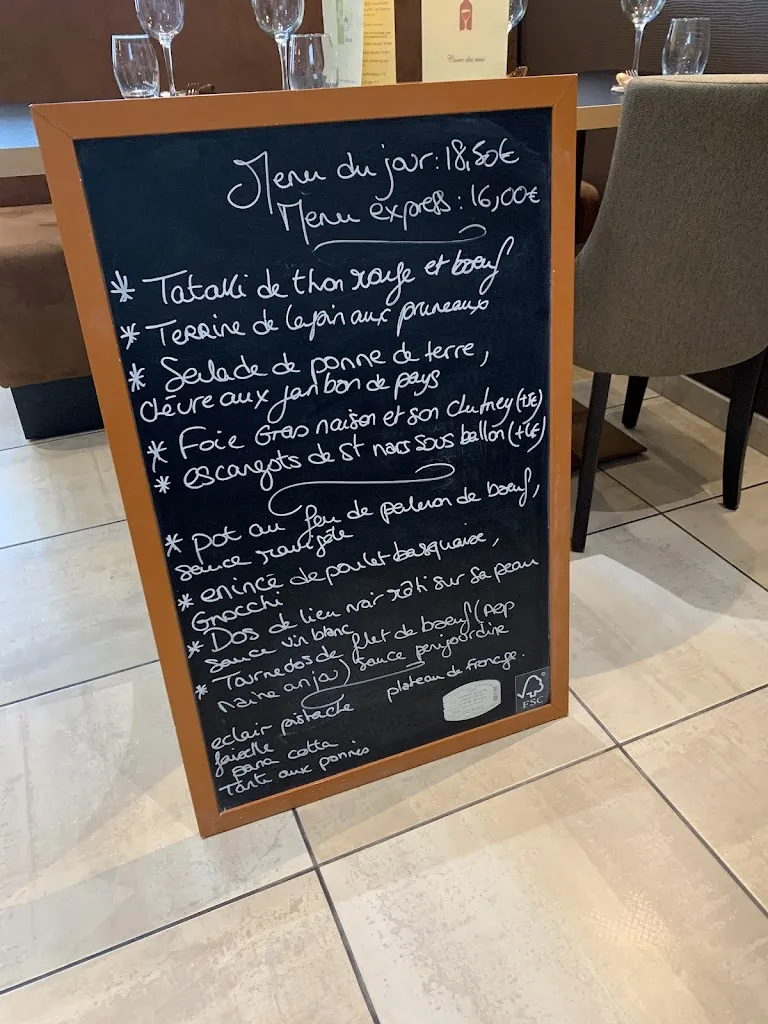 Carte des vins
Menu du jour : 18,50€
Menu express : 16,00€
* Tataki de thon rouge et boeuf
* Terrine de lapin aux pruneaux
* Salade de pomme de terre,
chèvre aux jambon de pays
* Foie Gras maison et son chutney
* escargots de St mars sous ballon (+4€)
* pot au feu de paleron de boeuf,
sauce ravigote
* emincé de poulet basquaise,
Gnocchi
* Dos de lieu noir rôti sur sa peau
sauce vin blanc
* Tournedos de filet de boeuf (AOP
maine anjou) sauce perigourdine
plateau de fromage.
eclair pistache
faisselle
pana cotta
Tarte aux pommes
FSC